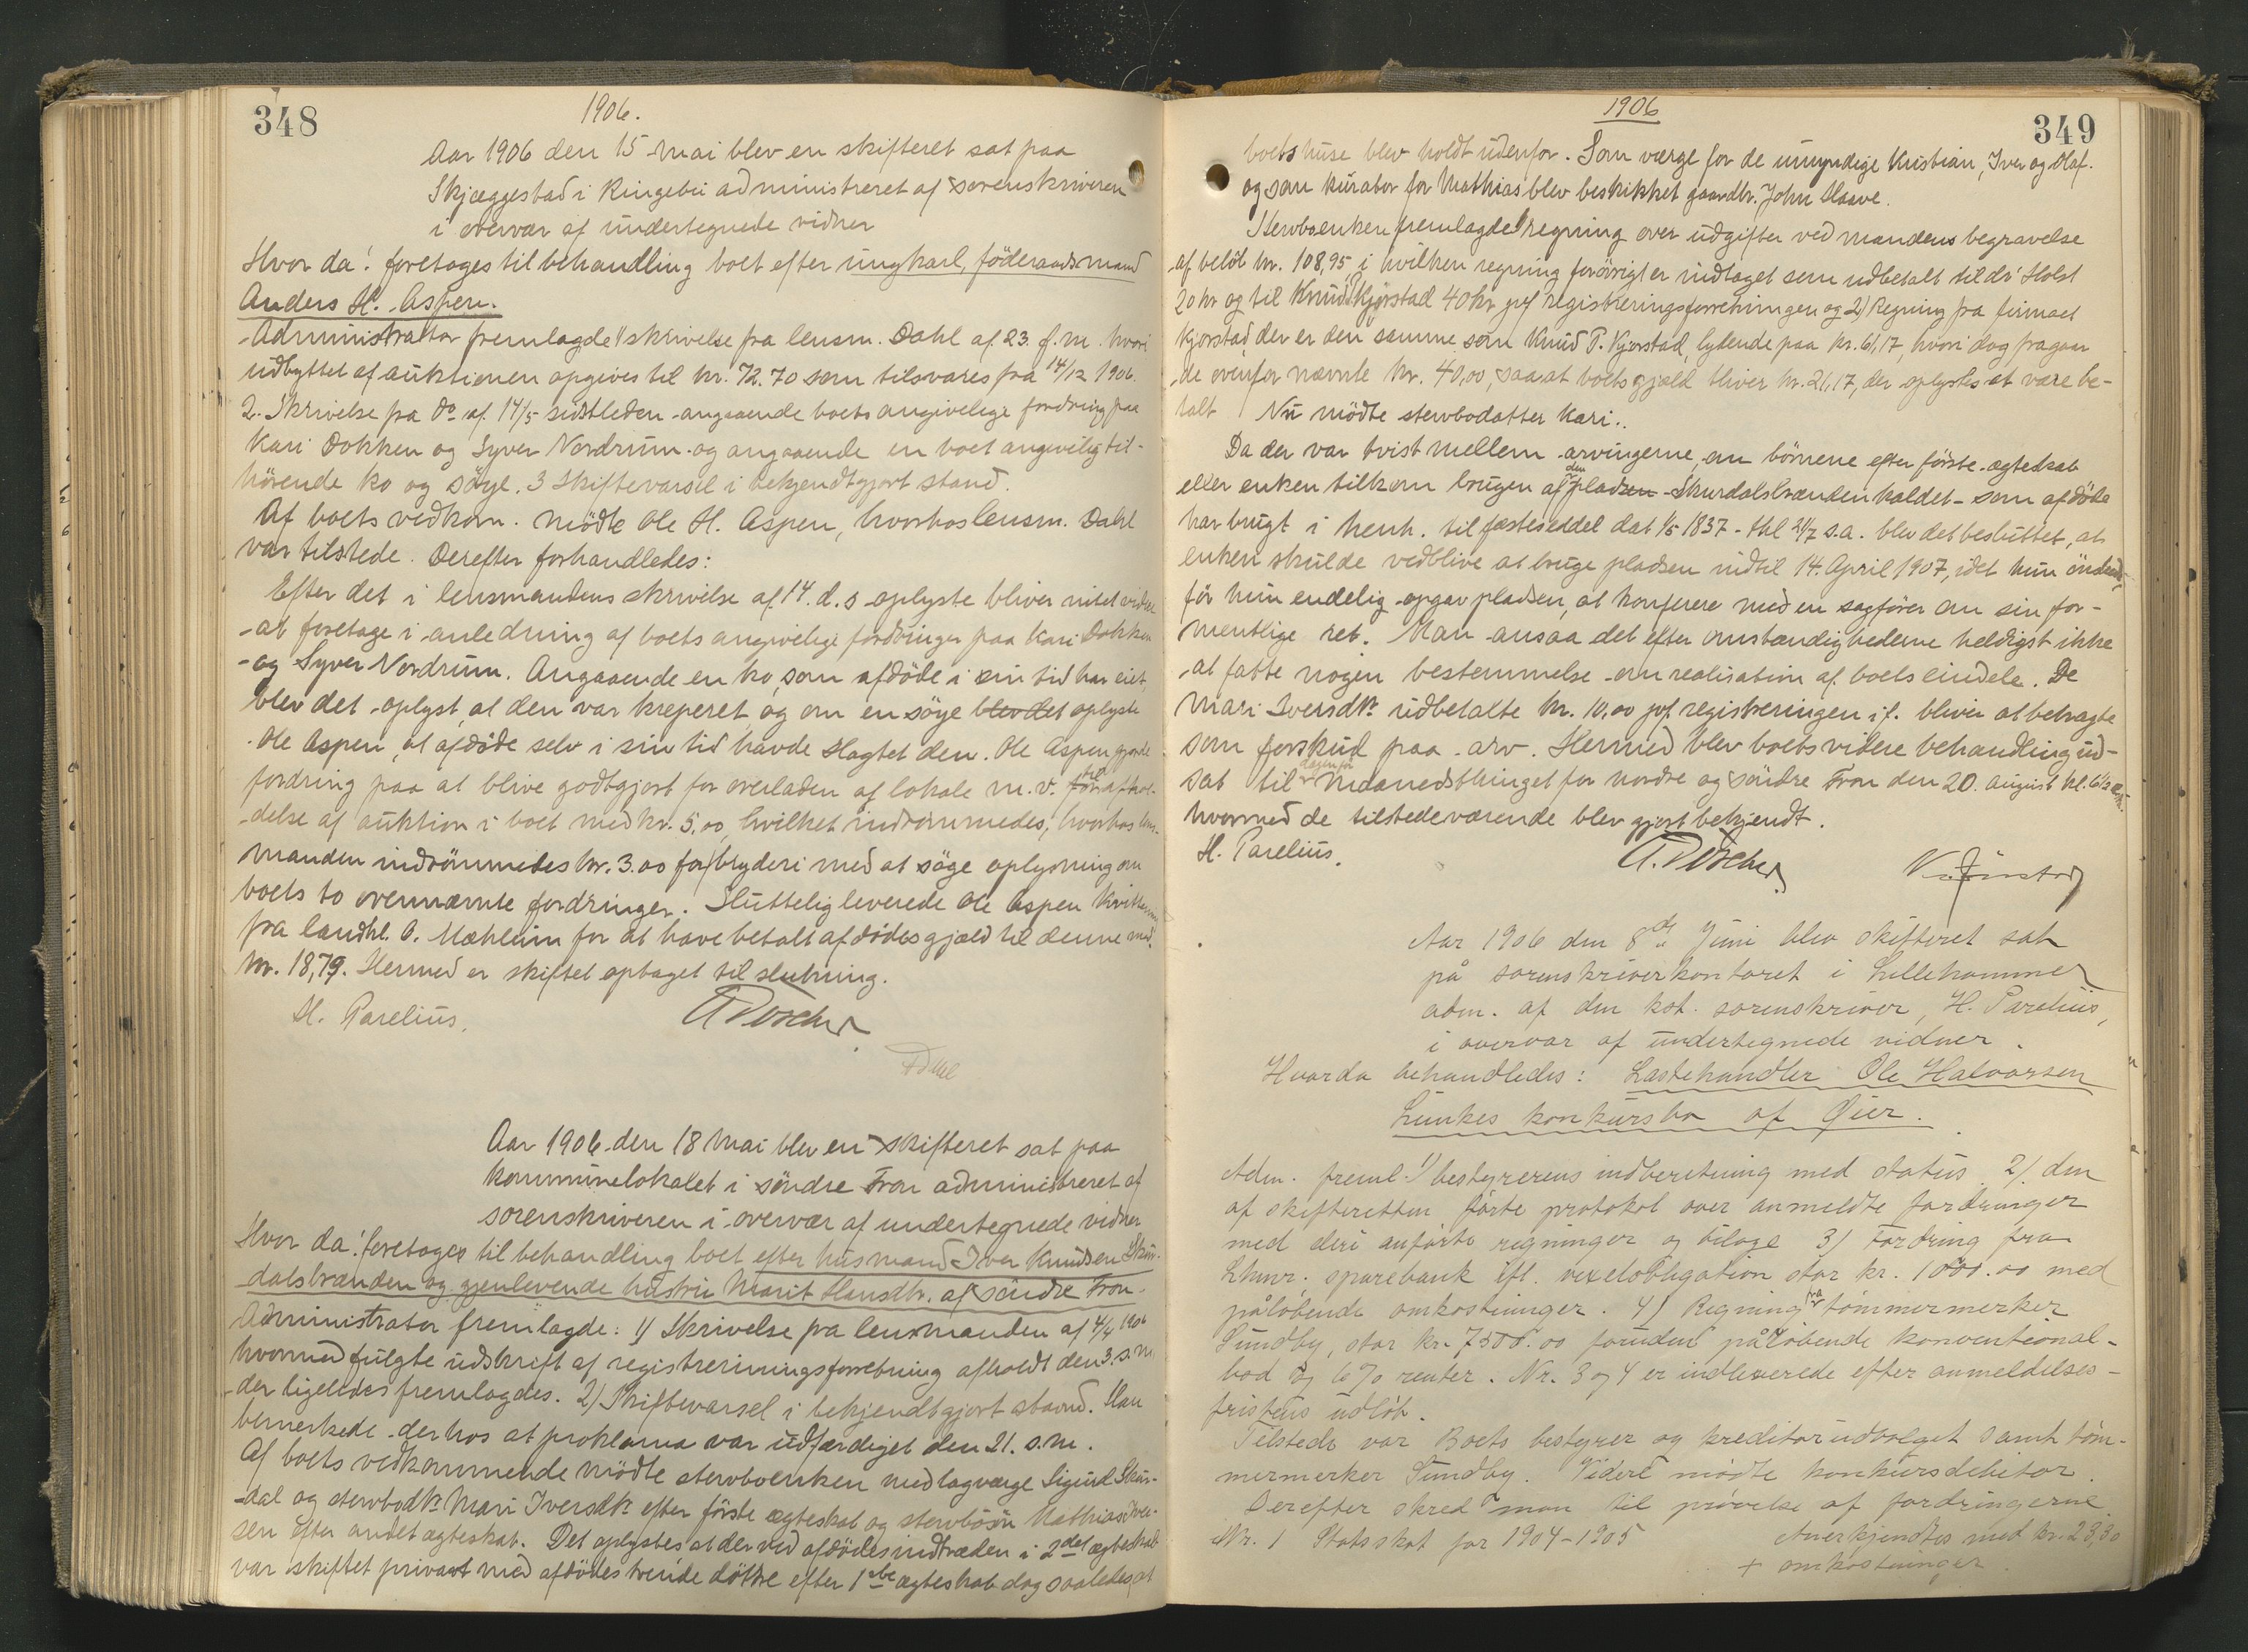 348
1906.
Aar 1906 den 15 mai blev en skifteret sat paa
Skjæggestad i Ringebu administreret af sorenskriveren
i overvær af undertegnede vidner
Hvor da! foretages til behandling boet efter ungkarl, föderaadsmand
Anders H. Aspen.
Administrator fremlagde 1/ skrivelse fra lensm. Dahl af 23. f.m. hvori
udbyttet af auktionen opgives til kr. 72.70 som tilsvares fra 14/12 1906.
2. Skrivelse fra do af 14/5 sidstleden angaaende boets angivelige fordring paa
Kari Dokken og Syver Nordrum og angaaende en boet angivelig til-
hörende ko og söye. 3 Skiftevarsel i bekjendtgjort stand.
Af boets vedkom. mödte Ole H. Aspen, hvorhos lensm. Dahl
var tilstede. Derefter forhandledes:
Efter det i lensmandens skrivelse af 14. d.s oplyste bliver intet videre
at foretage i anledning af boets angivelige fordringer paa Kari Dokken
og Syver Nordrum. Angaaende en ko, som afdöde i sin tid har eiet,
blev det oplyst, at den var kreperet og om en söye blev det oplyste
Ole Aspen, at afdöde selv i sin tid havde slagtet den. Ole Aspen gjorde
fordring paa at blive godtgjort for overladen af lokale m.v. for til afhol-
delse af auktion i boet med kr. 5,00, hvilket indrömmedes, hvorhos lens-
manden indrömmedes kr. 3.00 for bryderi med at söge oplysning om
boets to ovennævnte fordringer. Sluttelig leverede Ole Aspen kvittering
fra landhl. O. Mæhlum for at have betalt afdödes gjæld til denne med
kr. 18,79. Hermed er skiftet optaget til slutning.
H. Parelius.
Aar 1906 den 18 Mai blev en skifteret sat paa
kommunelokalet i söndre Fron administreret af
sorenskriveren i overvær af undertegnede vidner
Hvor da! foretages til behandling boet efter husmand Iver Knudsen Skur-
dalsbrænden og gjenlevende hustru Marit Hansdtr. af söndre Fron.
Administrator fremlagde: 1/ Skrivelse fra lensmanden af 4/4 1906
hvormed fulgte udskrift af registreringsforretning afholdt den 3. s.m.
der ligeledes fremlagdes. 2) Skiftevarsel i bekjendtgjort stand. Man
bemerkede derhos at proklama var udfærdiget den 21. s.m.
Af boets vedkommende mödte stervboenken med lagværge Sigurd Skur-
dal og stervbodtr. Mari Iversdtr. efter förste ægteskab og stervbösön Mathias Iver-
sen efter andet ægteskab. Det oplystes at der ved afdödes indtræden i 2det ægteskab
var skiftet privat med afdödes trende döttre efter 1ste ægteskab dog saaledes, at
349
1906
boets huse blev holdt udenfor. Som værge for de umyndige Kristian, Iver og Olaf.
og som kurator for Mathias blev beskikket gaardbr. John Haave.
Stervboenken fremlagde 1) regning over udgifter ved mandens begravelse
af beløb kr. 108,95, i hvilken regning forövrigt er indtaget som udbetalt til dr. Holst
20 kr og til Knud Kjörstad 40 kr. jvf registreringsforretningen og 2) Regning fra firmaet
Kjorstad der er den samme som Knud P. Kjorstad, lydende paa kr. 61,17, hvori dog fragaar
de ovenfor nævnte kr. 40,00, saa at boets gjæld bliver kr. 21,17, der oplystes at være be-
talt Nu mödte stervbodatter Kari.
Da der var tvist mellem arvingerne, om börnene efter förste ægteskab
eller enken tilkom brugen af den pladsen Skurdalsbrænden kaldet som afdöde
har brugt i henh. til fæsteseddel dat 1/5 1837 - thl 21/7 s.a. blev det besluttet, at
enken skulde vedblive at bruge pladsen indtil 14. April 1907, idet hun önskede,
för hun endelig opgav pladsen, at konferere med en sagförer om sin for-
mentlige ret. Man ansaa det efter omstændighederne heldigst ikke
at fatte nogen bestemmelse om realisation af boets eiendele. De
Mari Iversdtr. udbetalte kr. 10,00 jvf. registreringen i f. bliver at betragte
som forskud paa arv. Hermed blev boets videre behandling ud-
sat til dagen för Maanedsthinget for nordre og söndre Fron den 20. august kl. 6 1/2
hvormed de tilstedeværende blev gjort bekjendt.
H. Parelius.
Aar 1906 den 8de Juni blev skifteret sat
på sorenskriverkontoret i Lillehammer
adm. af den kst. sorenskriver, H. Parelius,
i overvær af undertegnede vidner.
Hvorda behandledes: Lastehandler Ole Halvorsen
Lunkes konkursbo af Øier.
Adm. freml. 1) bestyrerens indberetning med status. 2). den
af skifteretten förte protokol over anmeldte fordringer
med deri anförte regninger og bilage 3) Fordring fra
Lhmr. sparebank ifl. vexelobligation stor kr. 1000.00 med
påløbende omkostninger. 4) Regning fra tömmermerker
Sundby, stor kr. 7500.00 foruden påløbende konventional-
bod og 6% renter. Nr. 3 og 4 er indleverede efter anmeldelses-
fristens udløb.
Tilstede var Boets bestyrer og kreditorudvalget samt töm-
mermerker Sundby. Videre mødte konkursdebitor.
Derefter skred man til prövelse af fordringerne
Nr. 1 Statsskat for 1904-1905 Anerkjendtes med kr. 23,30
+ omkostninger.